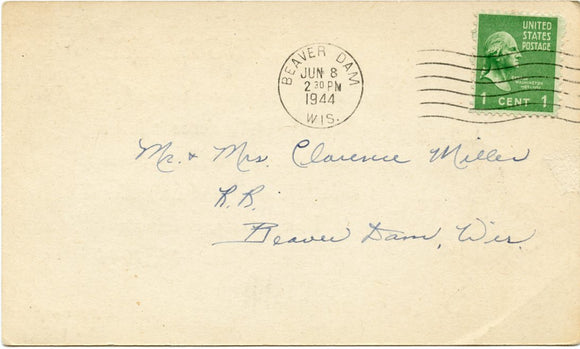 UNITED
STATES
POSTAGE
WASHINGTON
1 CENT 1
BEAVER DAM
JUN 8
2 30 PM
1944
WIS.
Mr. & Mrs. Clarence Miller
R.R.
Beaver Dam, Wis.